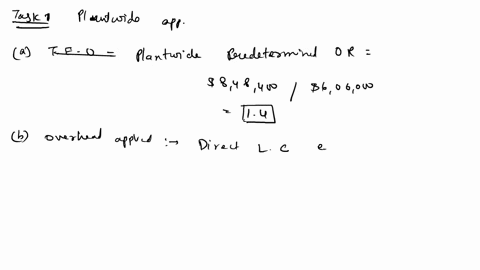 Task 1 Plantwide app.
(a) T.F.O = Plantwide Predetermind OR =
$8,48,400 / $6,06,000
= 1.4
(b) overhead applied :→ Direct L.C e